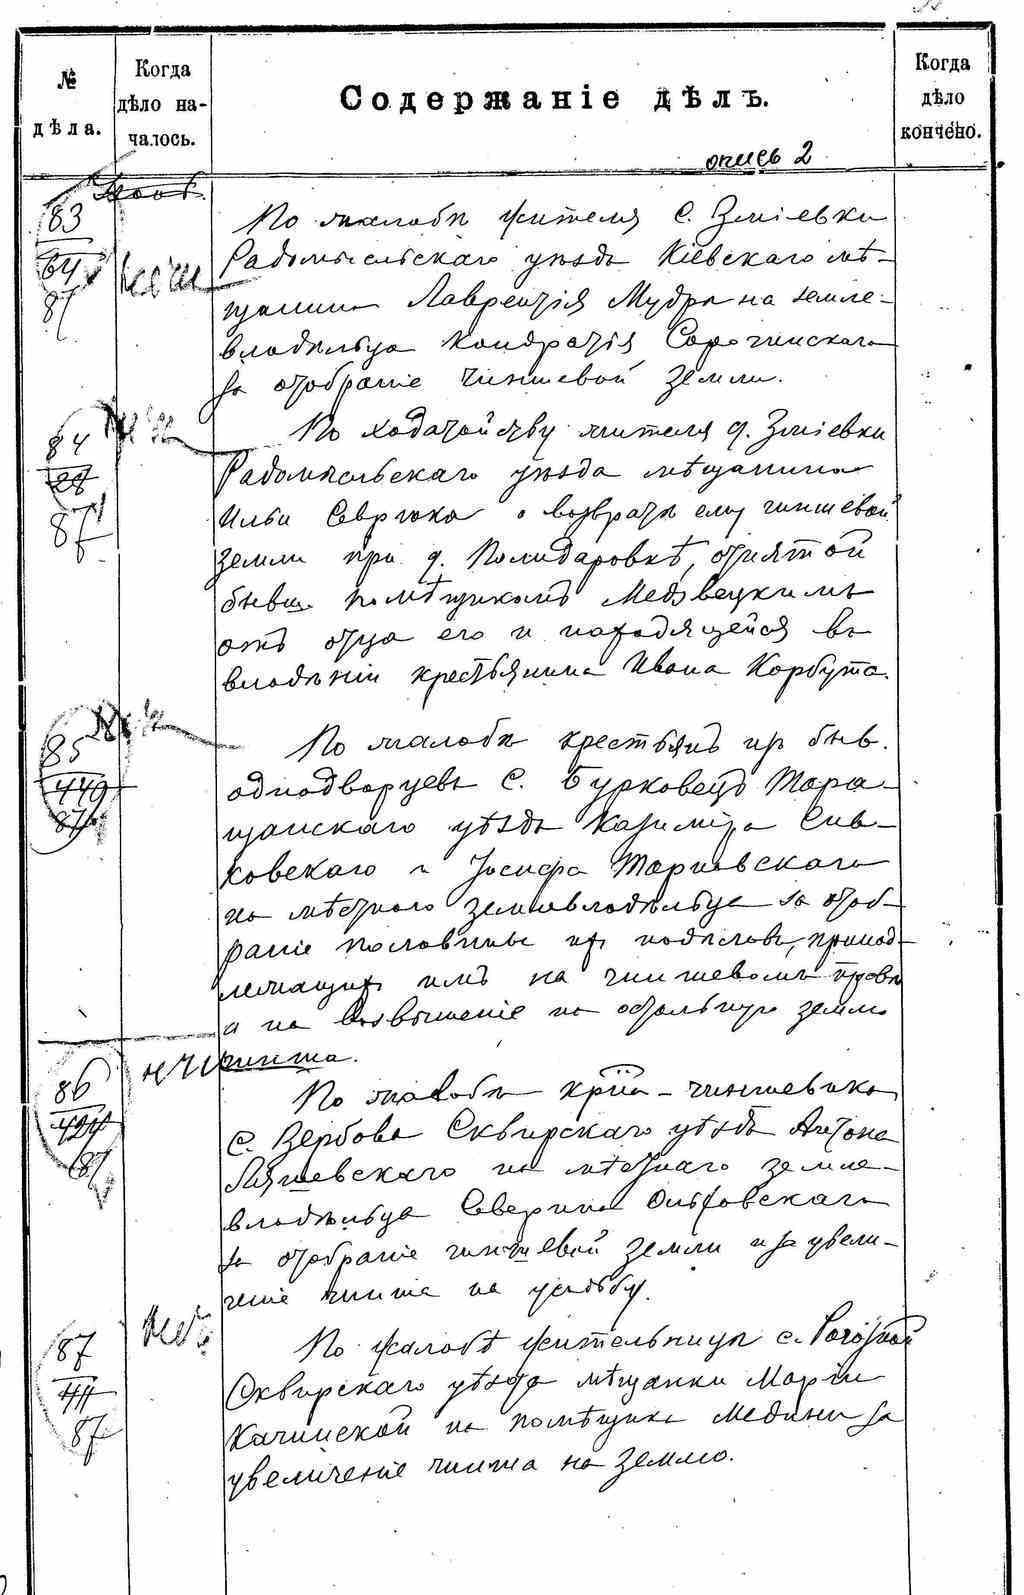 №
дѣла.
Когда
дѣло на-
чалось.
Содержаніе дѣлъ.
Когда
дѣло
кончено.
опись 2
83
64
87
По жалобѣ жителя с. Зміевки
Радомысльскаго уѣзда Кіевскаго мѣ-
щанина Лаврентія Мудра на земле-
владѣльца Кондратія Сорочинскаго
за отобраніе чиншевой земли.
84
87
По ходатайству жителя д. Зміевки
Радомысльскаго уѣзда мѣщанина
Ильи Севрюка о возвратѣ ему чиншевой
земли при д. Полидаровкѣ, отнятой
бывш. помѣщикомъ Медвецкимъ
отъ отца его и находящейся въ
владѣніи крестьянина Ивана Корбута.
85
449
87
По жалобѣ крестьянъ изъ быв.
однодворцевъ с. Бурковецъ Тара-
щанскаго уѣзда Казиміра Сив-
ковскаго и Іосифа Тарновскаго
на мѣстнаго землевладѣльца за отоб-
раніе половины ихъ надѣловъ, принад-
лежащихъ имъ на чиншевомъ правѣ
и на возвышеніе на остальную землю
чинша.
86
424
87
По жалобѣ кр-на - чиншевика
с. Вербова Сквирскаго уѣзда Антона
Ляшевскаго на мѣстнаго земле-
владѣльца Северина Ольховскаго
за отобраніе чиншевой земли и за увели-
ченіе чинша на усадьбу.
87
44
87
По жалобѣ жительницы с.
Сквирскаго уѣзда мѣщанки Маріи
Качинской на помѣщика Медини за
увеличеніе чинша на землю.